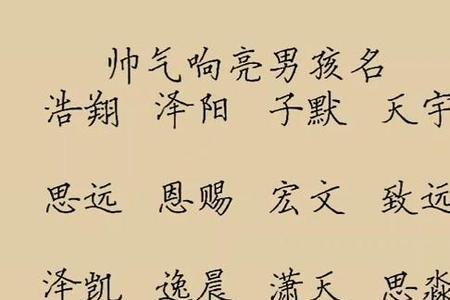 帅气响亮男孩名
浩翔 泽阳 子默 天宇
思远 恩赐 宏文 致远
泽凯 逸晨 潇天 思淼